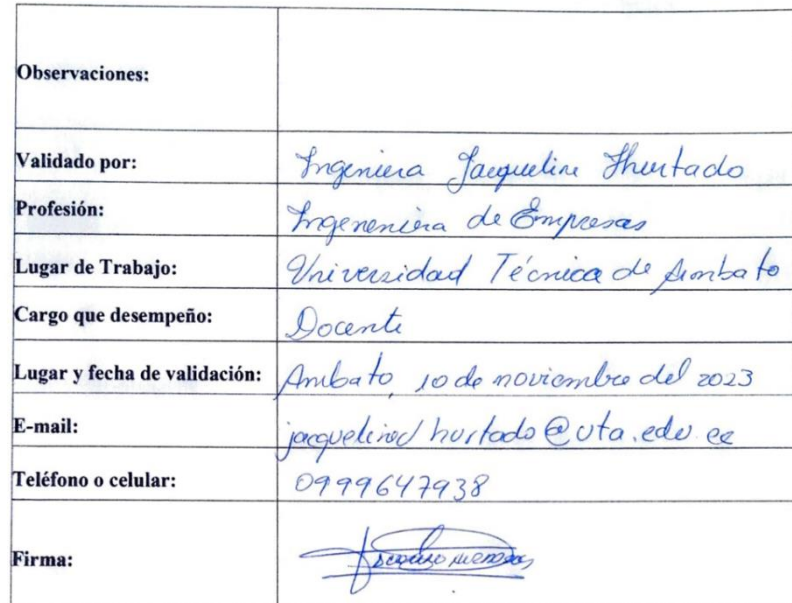 Observaciones:
Validado por: Ingeniera Jacqueline Hurtado
Profesión: Ingeneniera de Empresas
Lugar de Trabajo: Universidad Técnica de Ambato
Cargo que desempeño: Docente
Lugar y fecha de validación: Ambato, 10 de noviembre del 2023
E-mail: hurtado@uta.edu.ec
Teléfono o celular: 0999647938
Firma: